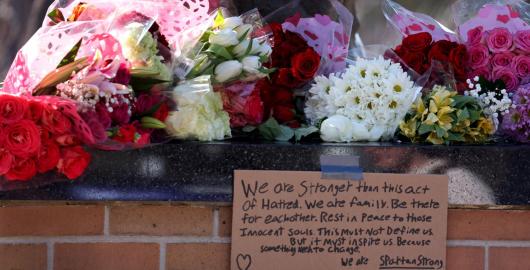 We are Stronger than this act
Of Hatred. We are family. Be there
for eachother. Rest in Peace to those
Innocent souls. This Must Not Define us.
But it Must inspire us. Because
something needs to change.
We are Spartan Strong